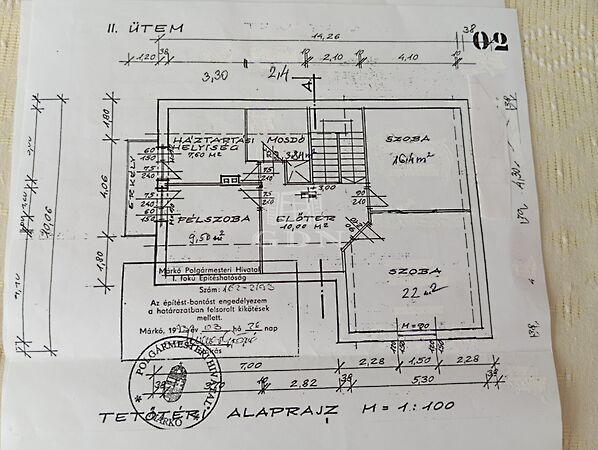 II. ÜTEM
02
14,26
38
1,20
38
10
2,10
10
4,10
3,30
2,4
A
1,80
4,06
1,80
10,06
ERKÉLY
HÁZTARTÁSI
HELYISÉG
7,60 M²
MOSDÓ
SZOBA
16,4 m²
60
150
75
240
75
210
3,00
90
210
75
240
60
150
FÉLSZOBA
9,50 m²
ELŐTÉR
10,00 M²
GDN
SZOBA
22 m²
4,30
Márkó Polgármesteri Hivatal
I. fokú Építéshatóság
Szám:
Az építést-bontást engedélyezem
a határozatban felsorolt kikötések
mellett.
Márkó, 19 év 03 hó 26 nap
POLGÁRMESTERI HIVATAL
MÁRKÓ
M = 90
7,00
2,28
1,50
2,28
10
2,82
38
5,30
38
TETŐTÉRI ALAPRAJZ M = 1:100